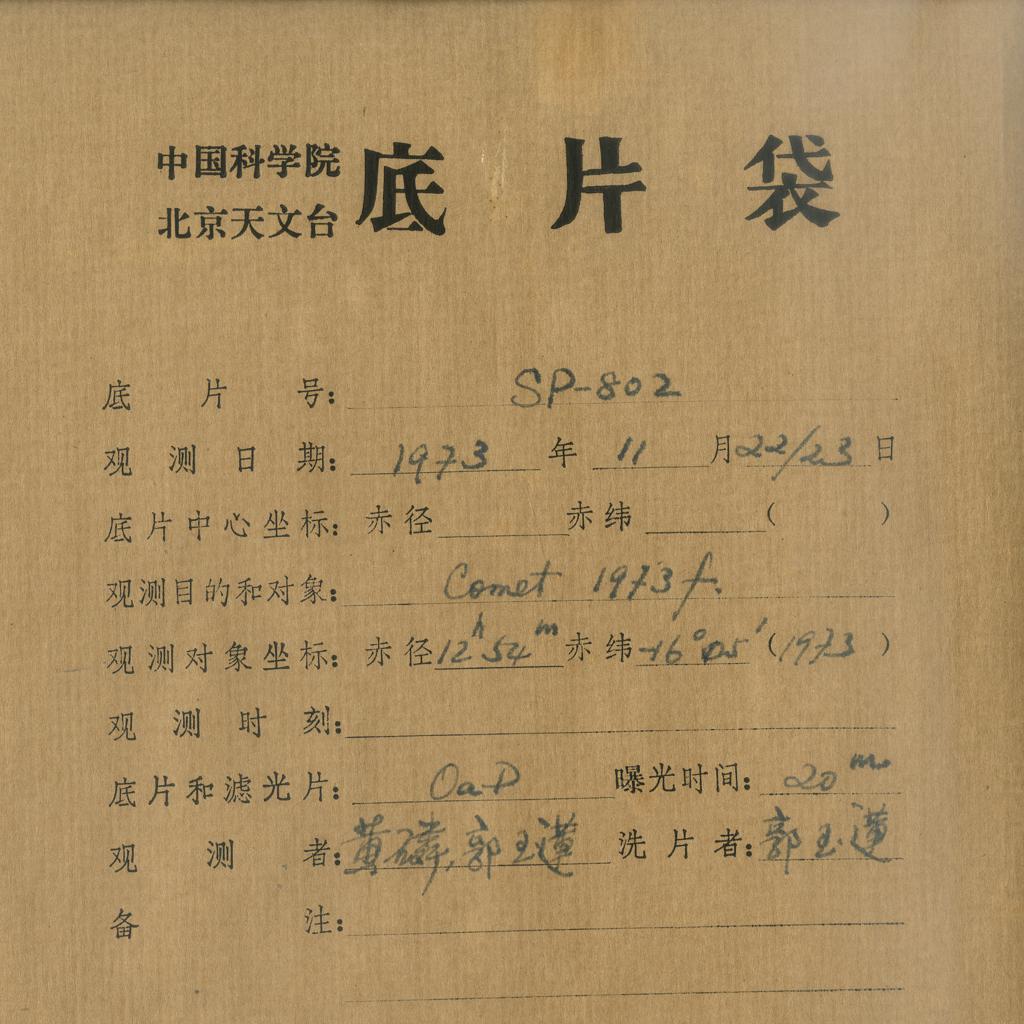 中国科学院
北京天文台
底片袋
底片号：SP-802
观测日期：1973年11月22/23日
底片中心坐标：赤径 赤纬 （ ）
观测目的和对象：Comet 1973f.
观测对象坐标：赤径12h54m赤纬-16°05′（1973）
观测时刻：
底片和滤光片：OaD 曝光时间：20m
观测者：黄磷,郭玉莲 洗片者：郭玉莲
备注：